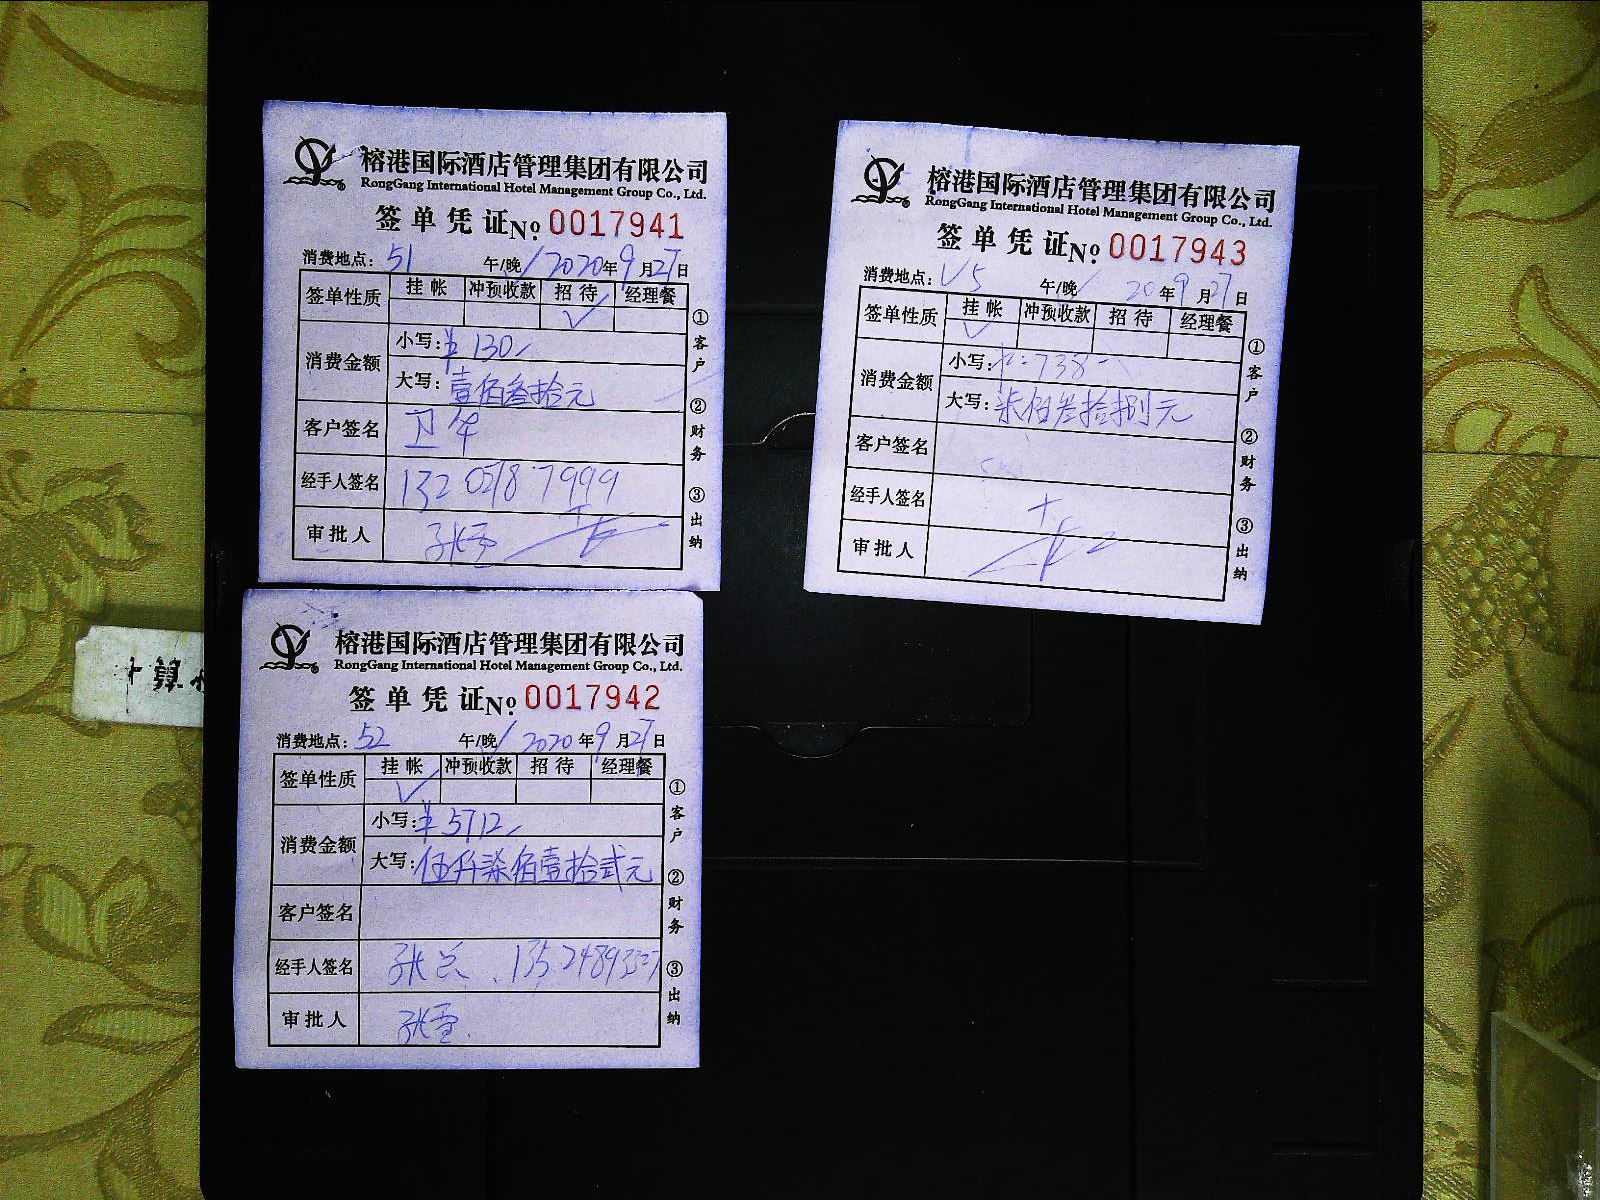 榕港国际酒店管理集团有限公司
RongGang International Hotel Management Group Co., Ltd.
签单凭证 No. 0017941
消费地点: 51 午/晚 ✓ 2020年9月27日
签单性质 挂帐 冲预收款 招待 经理餐
✓
消费金额 小写: ¥130
大写: 壹佰叁拾元
客户签名 卫华
经手人签名 132 0218 7999
审批人 张雪
①客户 ②财务 ③出纳
榕港国际酒店管理集团有限公司
RongGang International Hotel Management Group Co., Ltd.
签单凭证 No. 0017943
消费地点: V5 午/晚 ✓ 20年9月27日
签单性质 挂帐 冲预收款 招待 经理餐
✓
消费金额 小写: ¥:738
大写: 柒佰叁拾捌元
客户签名
经手人签名
审批人
①客户 ②财务 ③出纳
榕港国际酒店管理集团有限公司
RongGang International Hotel Management Group Co., Ltd.
签单凭证 No. 0017942
消费地点: 52 午/晚 ✓ 2020年9月27日
签单性质 挂帐 冲预收款 招待 经理餐
✓
消费金额 小写: ¥5712
大写: 伍仟柒佰壹拾贰元
客户签名
经手人签名 张总
审批人 张雪
①客户 ②财务 ③出纳
算